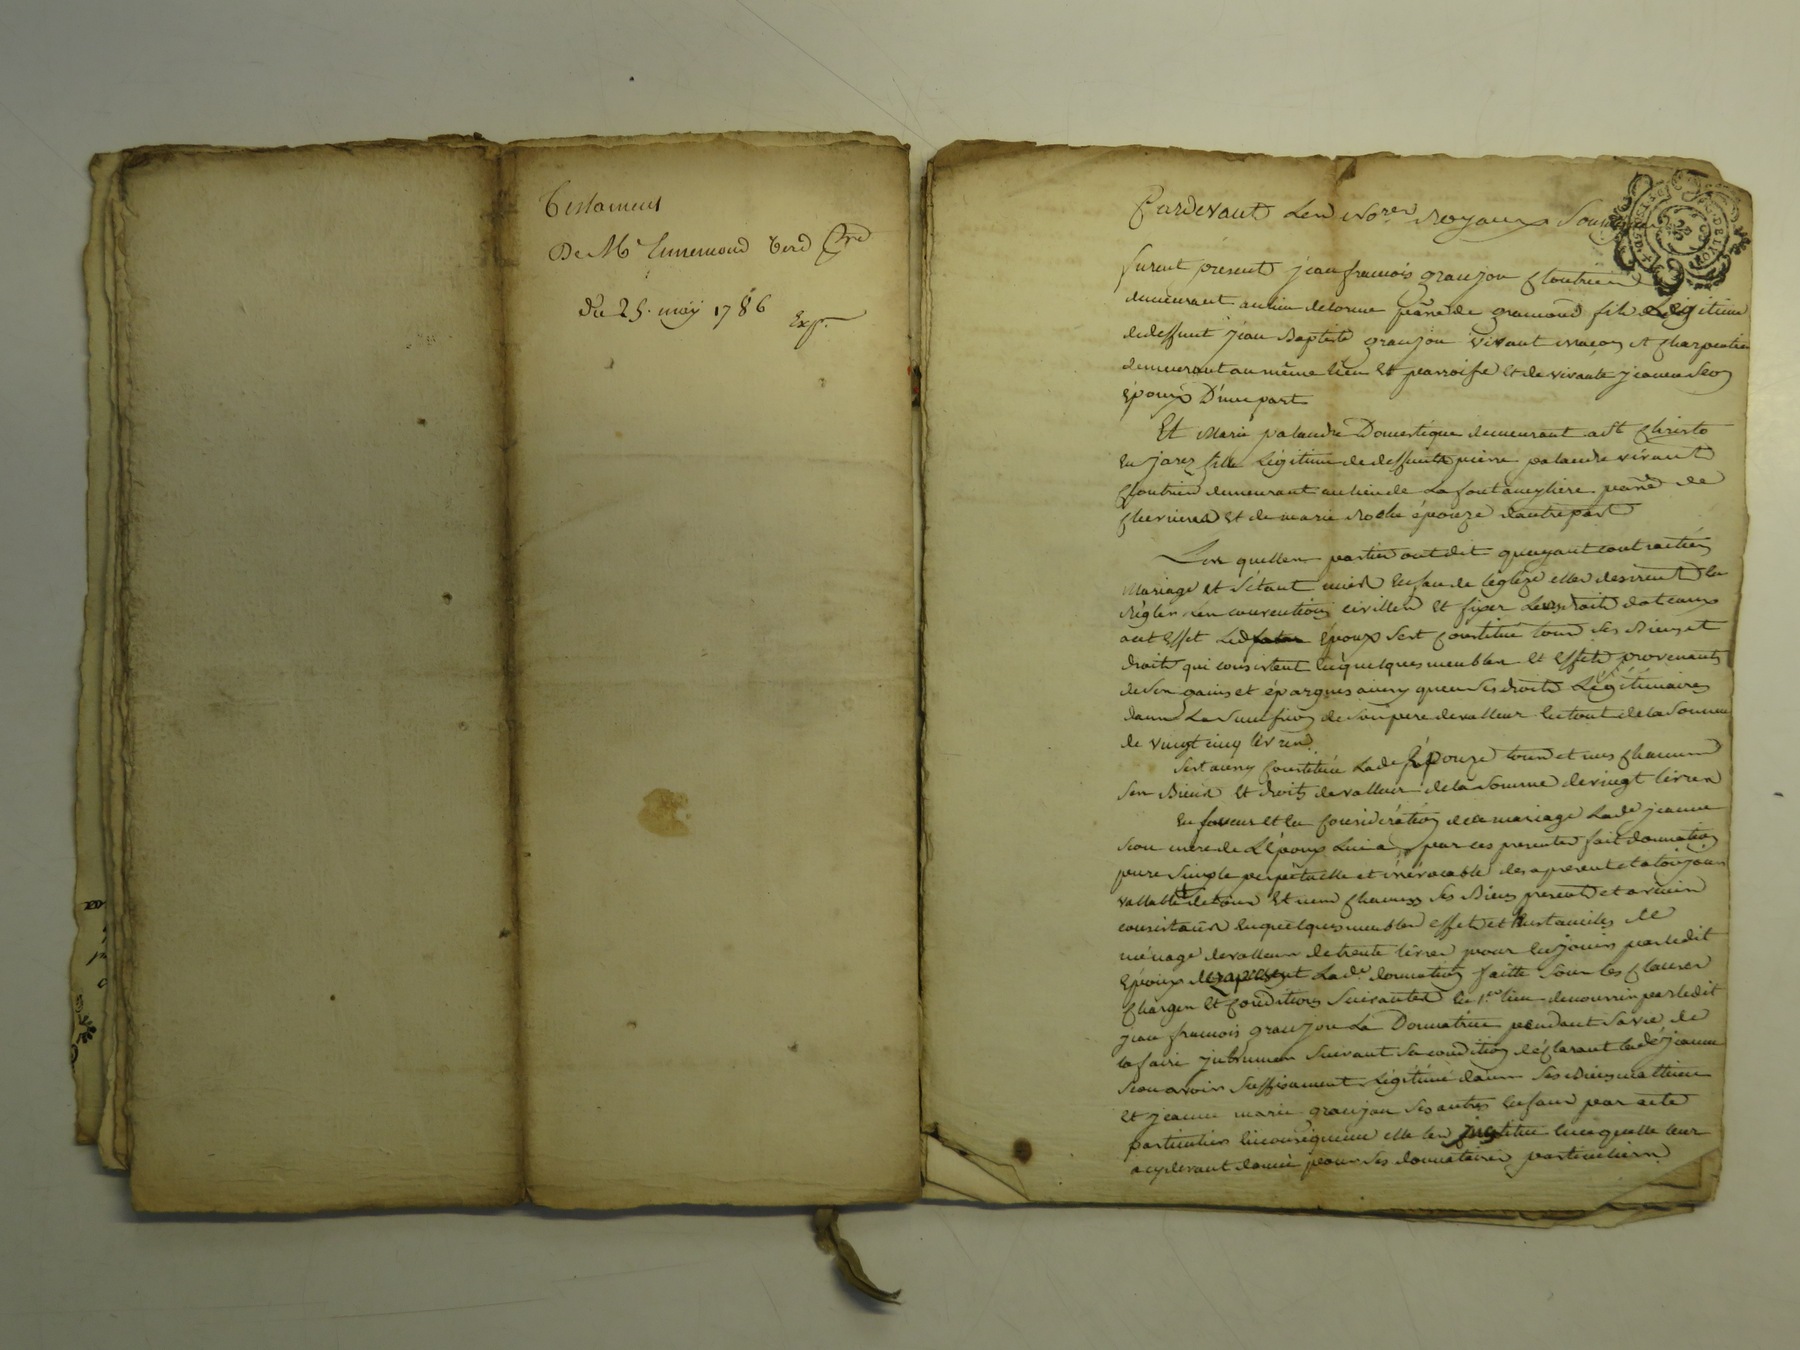 Testament
De Me Ennemond Verd
du 25. may 1786
Exp.
Pardevant Les Nores Royaux Soussignés
furent présents jean françois granjon cloutrier
demeurant au lieu de lorme parsse de gramond fils Légitime
de deffunt jean Baptiste granjon vivant maçon et charpentier
demeurant au même lieu et parroisse et de vivante jeanne Seon
Epoux D'une part
Et Marie palandre Domestique demeurant a St Christo
En jares fille Légitime de deffunt pierre palandre vivant
Cloutrier demeurant au lieu de La fontaneyliere parsse de
chevrieres et de marie Roche épouze dautre part
Les quelles parties ont dit qu'ayant contracté
Mariage et s'étant unies En face de léglize elles desirent En
Régler Les conventions civilles et fixer Leurs droits dotaux
a cet Effet Led époux sest Constitué tous ses Biens et
droits qui consistent En quelques meubles et Effets provenants
de ses gains et épargnes ainsy que ses droits Légitimaires
dans La Succession de Son pere de valleur En tout de la Somme
de vingt cinq livres
Sest aussy Constituée Lade Epouze tous et uns chacuns
Ses Biens et droits de valleur de la Somme de vingt livres
En faveur et En Considération de ce mariage Lade jeanne
Seon mere de L'époux Lui a par ces presentes fait donnation
pure Simple perpétuelle et irrévocable des a present et a toujours
vallable de tous et uns chacuns Ses Biens presents et avenir
consistants En quelques meubles effets et Ustancilles de
ménage de valleur de trente livres pour En jouir par ledit
Epoux des a present Lade donnation faitte Sous les clauses
charges et Conditions Suivantes En 1er lieu de nourrir par ledit
jean françois granjon La Donnatrice pendant Sa vie de
la faire inhumer Suivant Sa condition déclarant lade jeanne
Seon avoir Suffisament Légitimé dans Ses Biens mathieu
et jeanne marie granjon Ses autres Enfans par acte
particulier En conséquence elle les institue En ce qu'elle leur
a cy devant donné pour Ses donnataires particuliers